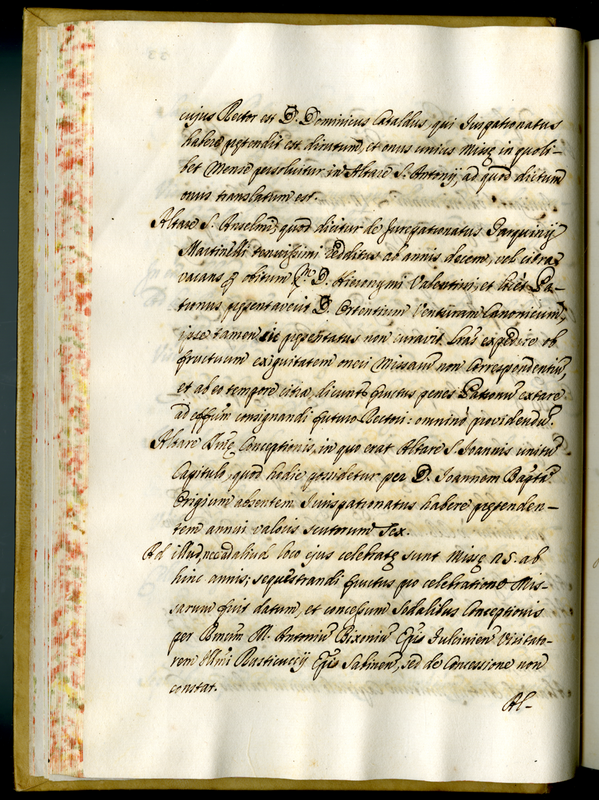 cujus Rector est D. Dominicus Cataldus, qui Iurispationatus
habere prętendit est dirutum, et onus unius Missę in quoli-
bet Mense persolvitur in Altare S. Antonij, ad quod dictum
onus translatum est.
Altare S. Anselmi, quod dicitur de Jurepationatus Tarquinij
Martinelli tenuissimi Redditus ab annis decem, vel citra
vacans obitum D. Hieronymi Valentini, et licet Pa-
tronus pręsentaverit D. Ortentium Venturam Canonicum,
ipse tamen sic pręsentatus non curavit. Lras expedire ob
fructuum exiguitatem oneri Missarum non Correspondentiũ,
et ab eo tempore citra, dicunt fructus penes Patronũ extare
ad effũm consignandi futuro Rectori: omnino providendũ.
Altare Conceptionis, in quo erat Altare S. Joannis unitũ
Capitulo, quod hodie possidetur per D. Joannem Baptã
Origium absentem Iurispationatus habere prętenden-
tem annui valoris scutorum sex.
Ad illud, nec ad aliud loco ejus celebratę sunt Missę ab
hinc annis; sequestrandi fructus pro celebratione Mis-
sarum fuit datum, et concessum fidelibus Conceptionis
per M. Antoniũ Bixoniũ Visitato-
rem Illmi Rusticuccij Sabinen, sed de Concessione non
constat.
Al-